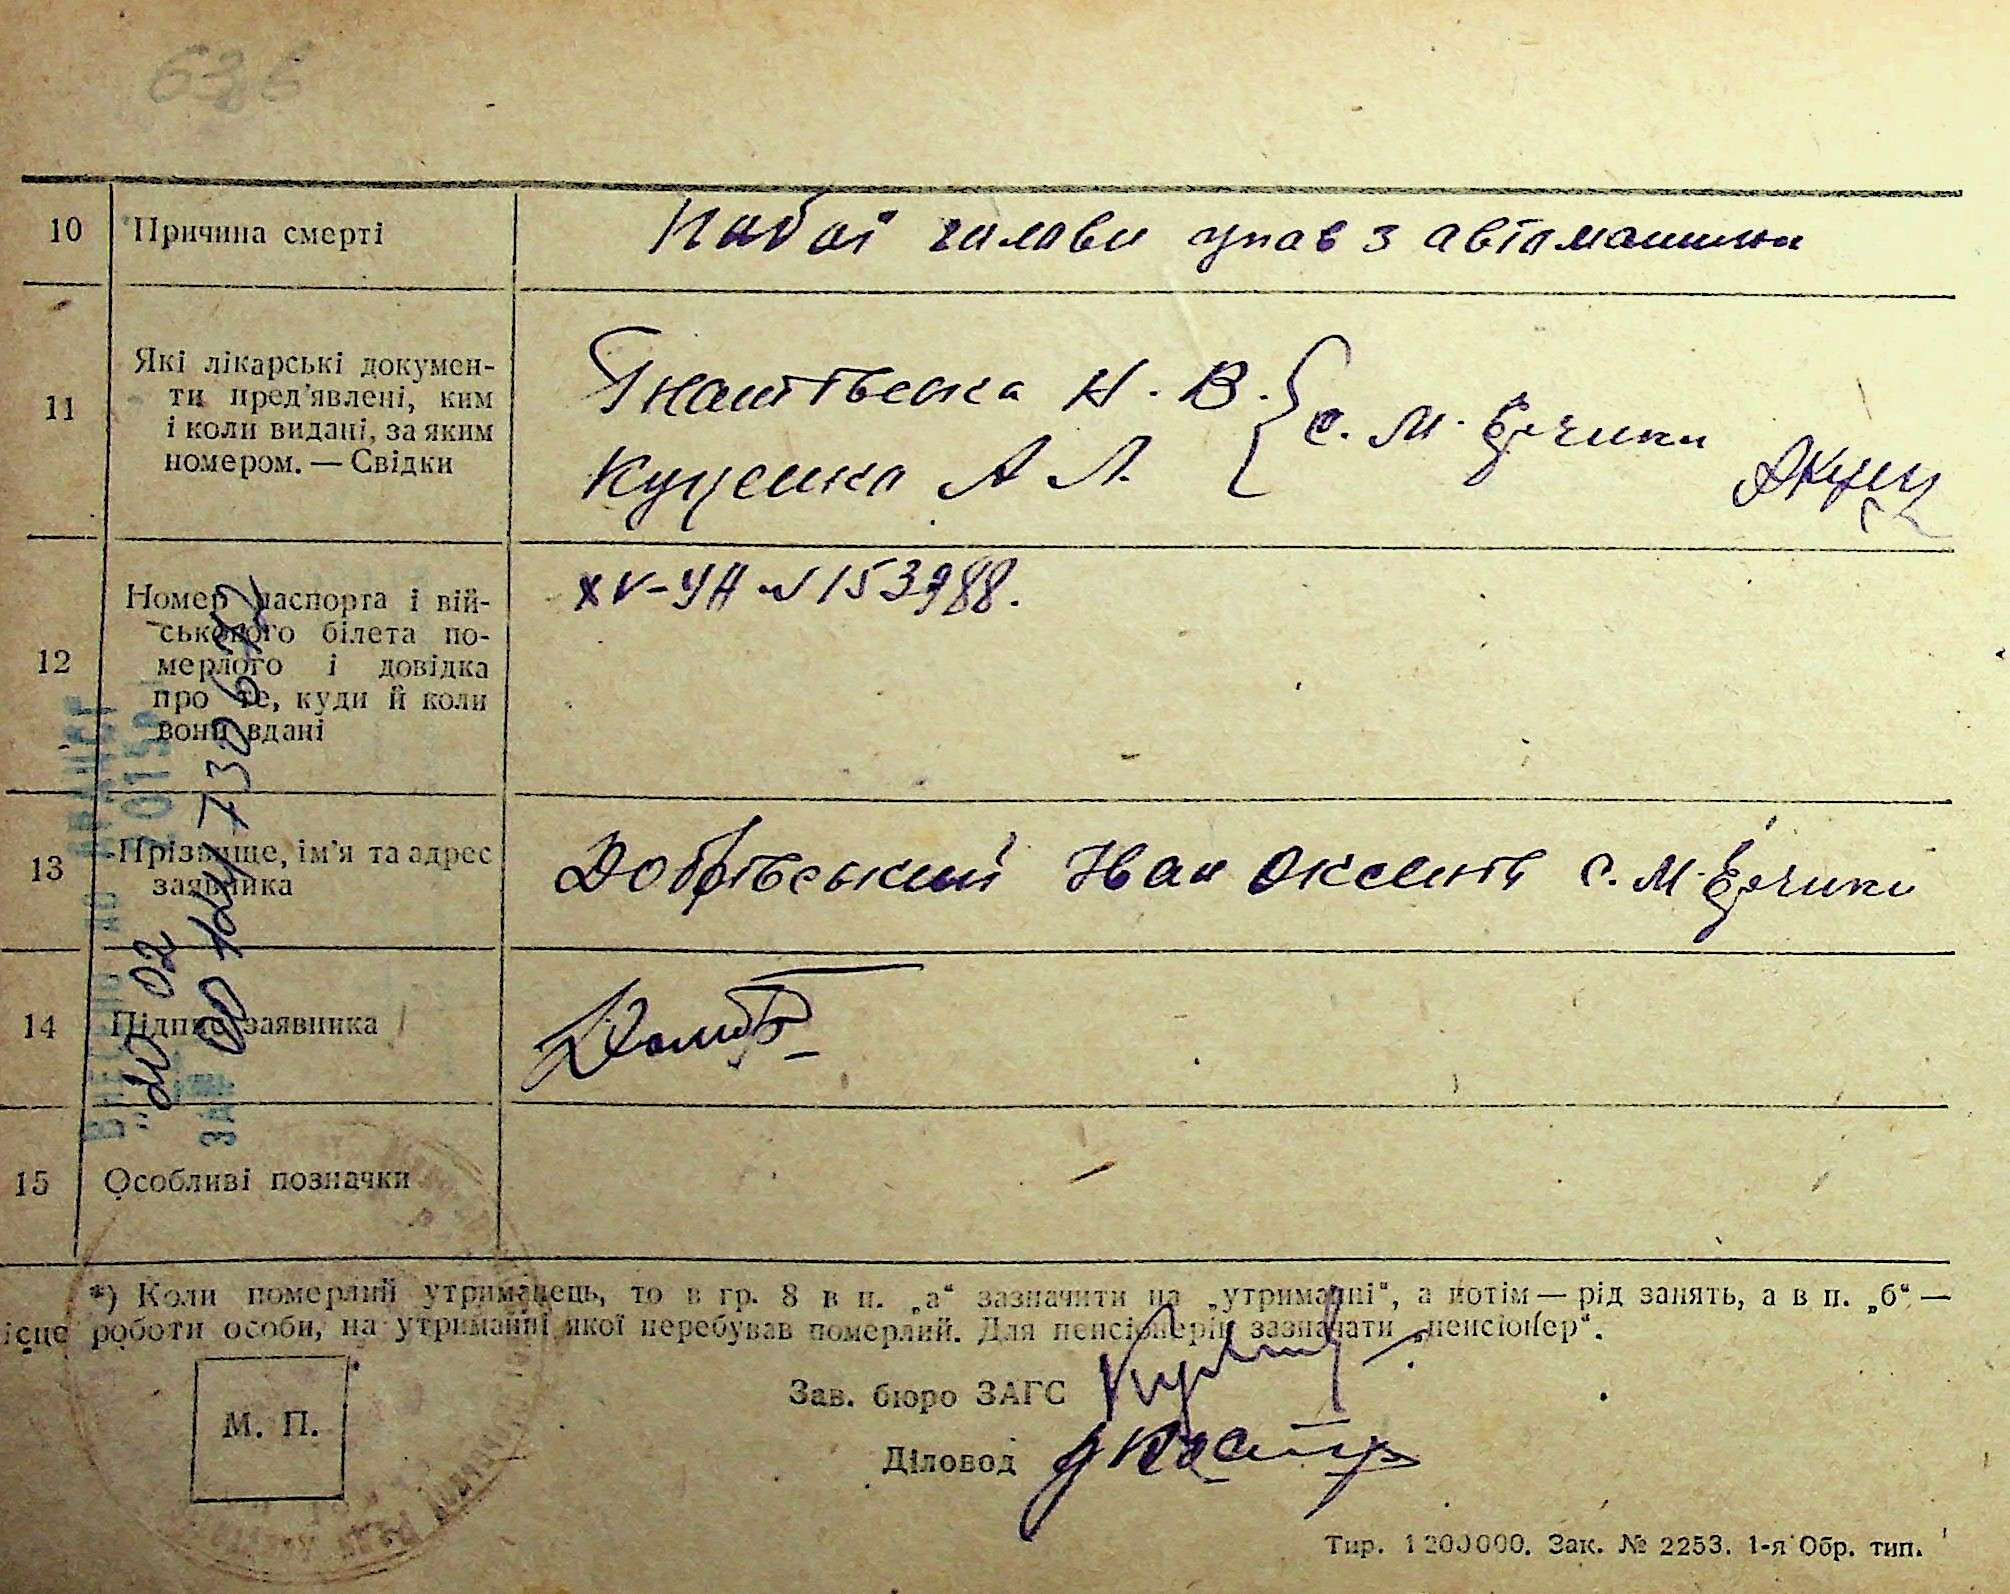 636
10 Причина смерті Побої голови упав з автомашини
11 Які лікарські докумен-
ти пред'явлені, ким
і коли видані, за яким
номером. — Свідки
Гнатівська Н. В.
Куценко А Л.
с. М. Єрчики
12 Номер паспорта і вій-
ськового білета по-
мерлого і довідка
про те, куди й коли
вони вдані
XV-УН № 153788.
13 Прізвище, ім'я та адрес
заявника
Добрівський Іван Оксент. с. М. Єрчики
14 Підпис заявника
15 Особливі позначки
*) Коли померлий утриманець, то в гр. 8 в п. „а“ зазначити на „утриманні“, а потім — рід занять, а в п. „б“ —
ісце роботи особи, на утриманні якої перебував померлий. Для пенсіонерів зазначати „пенсіонер“.
М. П.
Зав. бюро ЗАГС
Діловод
Тир. 1200000. Зак. № 2253. 1-я Обр. тип.